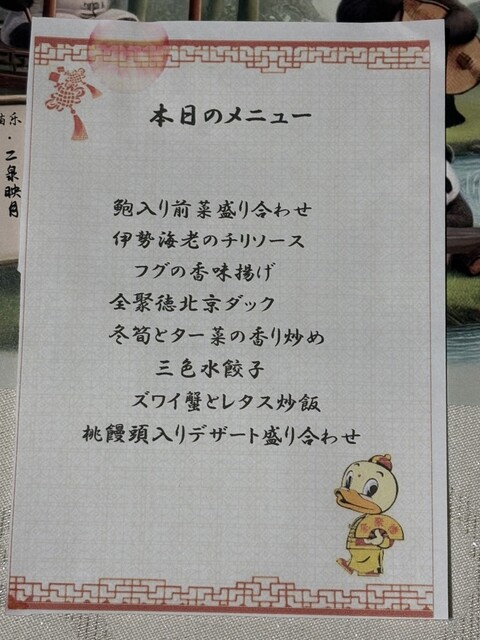 本日のメニュー
鮑入り前菜盛り合わせ
伊勢海老のチリソース
フグの香味揚げ
全聚徳北京ダック
冬筍とター菜の香り炒め
三色水餃子
ズワイ蟹とレタス炒飯
桃饅頭入りデザート盛り合わせ
全聚德
乐
·二泉映月